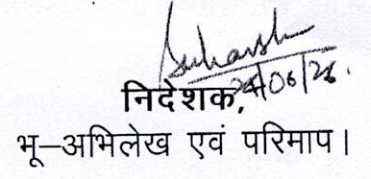 24/06/26.
निदेशक,
भू–अभिलेख एवं परिमाप।